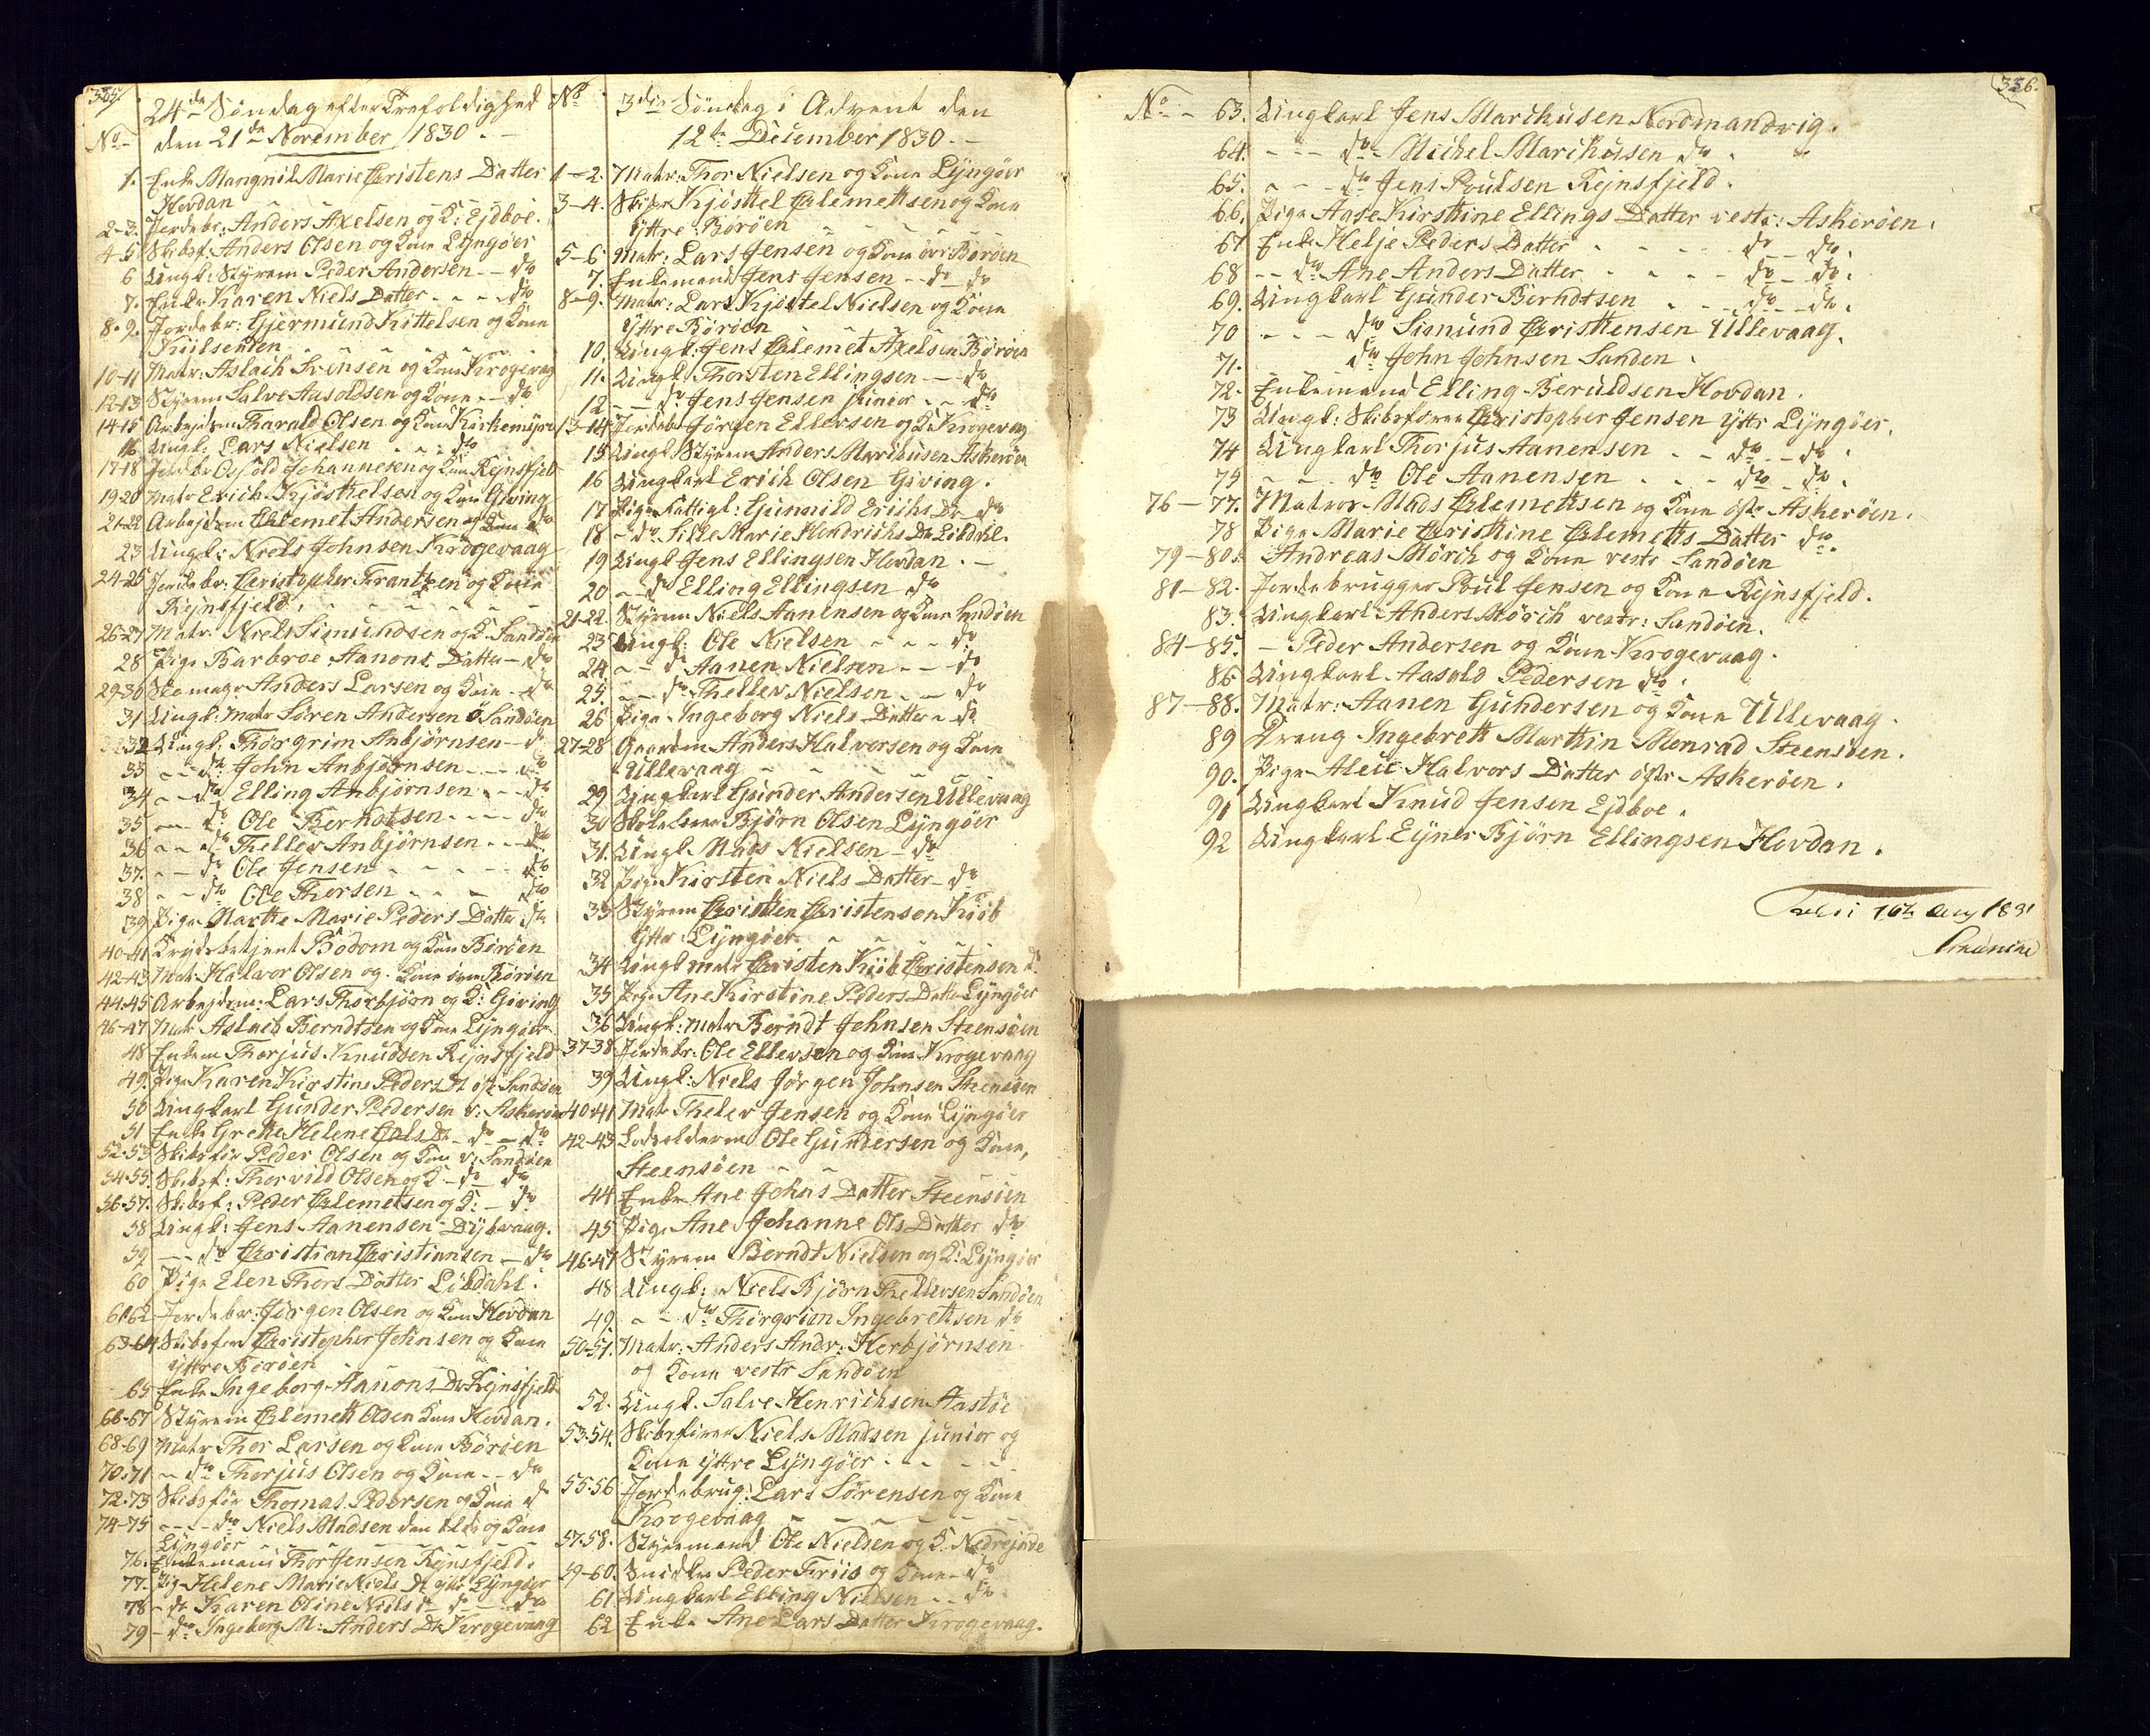 335.
24de Søndag efter Trefoldighed
No den 21de November 1830.
1. Enke Mangnil Marie Christens Datter
Hovdan
2-3. Jordebr: Anders Axelsen og K: Ejdboe.
4-5 Skibsf: Anders Olsen og Kone Lyngöer
6 Ungk: Styrm Peder Andersen -- do
7. Enke Karen Niels Datter - - - do
8-9. Jordebr: Gjermund Kittelsen og Kone
10-11 Matr: Aslach Svensen og Kone Krogevaag
12-13 Styrm Salve Aasoldsen og Kone -- do
14-15 Arbejdsm Tharald Olsen og Kone Kirkemyre
16 Ungk: Lars Nielsen - - do
17-18 Jordebr Johannesen og Kone Rejnsfjeld
19-20 Matr Erich Kjøsttelsen og Kone Giving
21-22 Arbejdsm Chlemet Andersen og Kone do
23 Ungk: Niels Johnsen Krogevaag
24-25 Jordebr: Christopher Frantzen og Kone
Rejnsfjeld.
26-27 Matr: Niels Simundsen og K. Sandöen
28 Pige Barbroe Aanons Datter - do
29-30 Skomagr Anders Larsen og Kone - do
31 Ungk: Matr Sören Andersen ö Sandöen
32 Ungk: Thorgrim Anbjørnsen - do
33 - - do John Anbjørnsen - - do
34 - - do Elling Anbjørnsen - - do
35 - - do Ole Berhdtsen - - - do
36 - - do Thellev Anbjørnsen - - do
37. - - do Ole Jensen - - - do
38 - - do Ole Thorsen - - - do
39 Pige Marthe Marie Peders Datter do
40-41 Krydsbetjent Bodom og Kone Böröen
42-43 Matr Halvor Olsen og Kone Böröen
44-45 Arbejdsm: Lars Thorbjørn og K: Giving
46-47 Matr Aslach Berndtsen og Kone Lyngöer
48 Enkem Thorjus Knudsen Rejnsfjeld
49. Pige Karen Kirstine Peders Dr öst Sandöen
50 Ungkarl Gunder Pedersen v: Askeröen
51 Enke Grethe Helene Dr - do - do
52-53 Skibsför Peder Olsen og Kone v: Sandöen
54-55 Skibsf: Thorvild Olsen og K - do do
56-57. Skibsf: Peder Chlemetsen og K: - do
58 Ungk: Jens Aanensen Dybvaag.
59 - - do Christian Christiansen - do
60 Pige Elen Thors Datter Lildahl.
61-62 Jordebr: Jørgen Olsen og Kone Hovdan
63-64 Skibsfør Christopher Johnsen og Kone
yttre Böröen
65 Enke Ingeborg Aanons Dr Rejnsfjeld
66-67 Styrm Chlemett Olsen Kone Hovdan.
68-69 Matr Thor Larsen og Kone Böröen
70-71 - do Thorjus Olsen og Kone - - do
72-73 Skibsför Thomas Pedersen og Kone do
74-75 - - - do Niels Madsen den eldr og Kone
Lyngöer
76. Enkemand Thor Jensen Rejnsfjeld.
77. Pige Helene Marie Niels Dr yttr Lyngöer
78 - do Karen Oline Niels Dr do - do
79 - do Ingeborg M: Anders Dr Krogevaag
No
3die Söndag i Advent den
12te December 1830.
1-2. Matr: Thor Nielsen og Kone Lyngöer
3-4. Skibsr Kjøsttel Chlemettsen og Kone
Yttre Böröen
5-6. Matr: Lars Jensen og Kone övr: Böröen
7. Enkemand Jens Jensen - do do
8-9. Matr: Lars Kjøstel Nielsen og Kone
Yttre Böröen
10. Ungk: Jens Chlemet Axelsen Böröen
11. Ungk: Thorsten Ellingsen - - do
12 - - do Jens Jensen junior - - do
13-14 Jordebr Jørgen Ellevsen og K: Krogevaag
15 Ungk Styrm Anders Marcusen Askeröen
16 Ungkarl Erich Olsen Giving.
17 Pige Fattigl: Gunvild Erichs Dr do
18 - do Silke Marie Hendrichs Dr Lildahl.
19 Ungk Jens Ellingsen Hovdan. -
20 - - do Elling Ellingsen do
21-22. Styrm Niels Aanensen og Kone Sandöen
23 Ungk: Ole Nielsen - - - do
24 - - do Aanen Nielsen - - do
25. - - do Thellev Nielsen - - do
26 Pige Ingeborg Niels Datter - do
27-28 Gaardm Anders Halvorsen og Kone
Ullevaag
29 Ungkarl Gunder Andersen Ullevaag
30 Skolelærer Bjørn Olsen Lyngöer
31. Ungk Mads Nielsen - do
32 Pige Kirsten Niels Datter - do
33 Styrm Christen Christensen Kiib
Yttr: Lyngöer
34 Ungk matr Christen Kiib Christensen do
35 Pige Ane Kirstine Peders Datter Lyngöer
36 Ungk: matr Berndt Johnsen Steensöen
37-38 Jordebr: Ole Ellevsen og Kone Krogevaag
39 Ungk: Niels Jørgen Johnsen Steensöen
40-41 Matr Thelev Jensen og Kone Lyngöer
42-43 Ole Gundersen og Kone,
Steensöen
44 Enke Ane Johns Datter Steensöen
45 Pige Ane Johanne Ols Datter do
46-47 Styrm Berndt Nielsen og K: Lyngöer
48 Ungk: Niels Bjørn Thellevsen Sandöen
49 - - do Thorgrim Ingebrethsen do
50-51. Matr: Anders Andr: Herbjørnsen
og Kone vestr Sandöen
52. Ungk. Salve Henrichsen Aastöe
53-54. Skibsfører Niels Madsen junior og
Kone yttre Lyngöer
55-56 Jordebrug: Lars Sörensen og Kone
Krogevaag
57-58. Styrmand Ole Nielsen og K. Nedrejorde
59-60. Snidkr Peder Friis og Kone - do
61 Ungkarl Elling Nielsen - - do
62 Enke Ane Lars Datter Krogevaag.
336.
No - 63. Ungkarl Jens Marchusen Nordmandvig.
64. - - do - Michel Marchusen do.
65. - - do Jens Poulsen Rejnsfjeld.
66. Pige Aase Kirstine Ellings Datter vestr: Askeröen.
67 Enke Helje Peders Datter - - - do do.
68 - - do Ane Anders Datter - - - do - do.
69. Ungkarl Gunder Berndtsen - - do - do.
70 - - - do Simund Christensen Ullevaag.
71. do John Johnsen Sanden.
72. Enkemand Elling Beruldsen Hovdan.
73 Ungk: Skibsfører Christopher Jensen Yttr Lyngöer.
74 Ungkarl Thorjus Aanensen - - do - do.
75 - - - do Ole Aanensen - - - do - do.
76-77. Matros Mads Chlemetsen og Kone östr Askeröen.
78 Pige Marie Christine Chlemetts Datter do.
79-80. Andreas Mörch og Kone vestr Sandöen
81-82. Jordebrugger Poul Jensen og Kone Rejnsfjeld.
83. Ungkarl Anders Mörch vestr: Sandöen.
84-85. - Peder Andersen og Kone Krogevaag.
86 Ungkarl Aasold Pedersen do.
87-88. Matr: Aanen Gundersen og Kone Ullevaag.
89 Dreng Ingebreth Marthin Monrad Steensöen.
90. Pige Aleu Halvors Datter östr Askeröen.
91 Ungkarl Knud Jensen Ejdboe.
92 Ungkarl Ejner Bjørn Ellingsen Hovdan.
16de Aug 1831